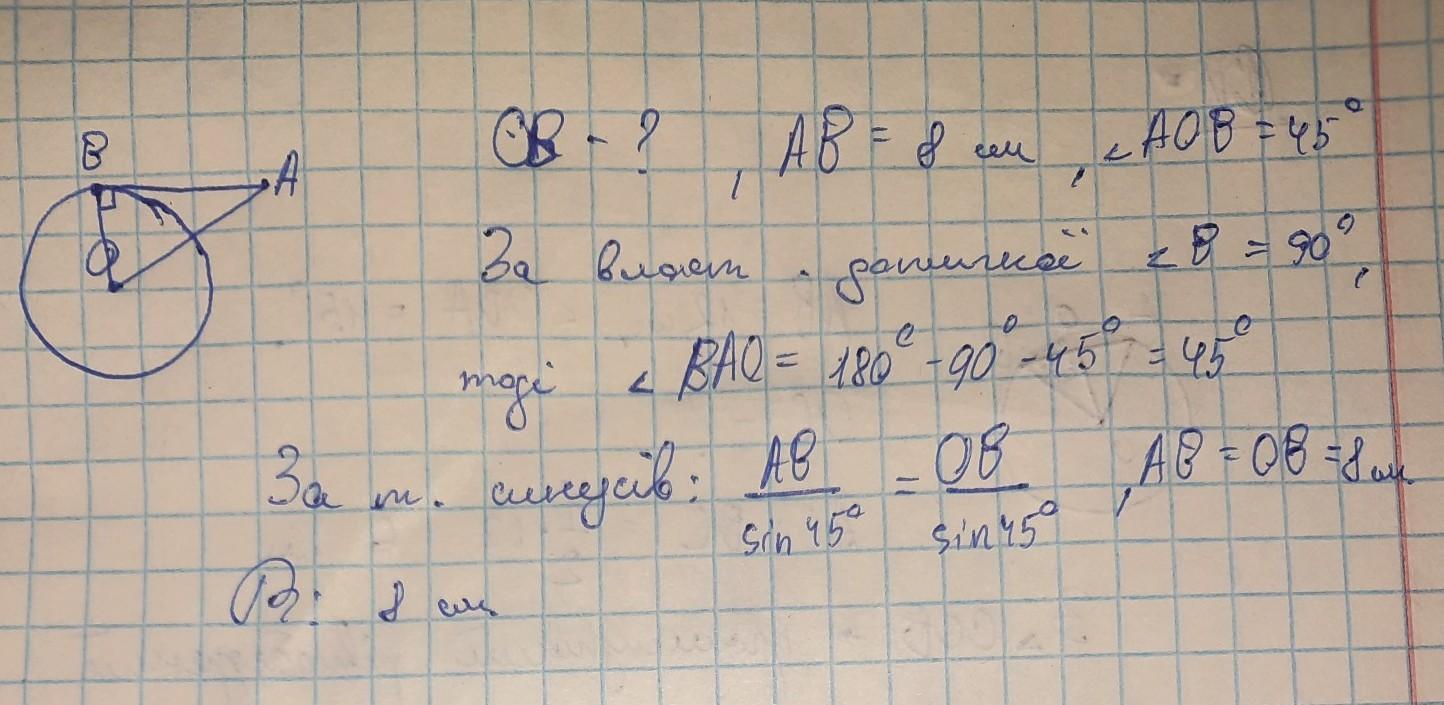 B
A
O
OB - ? , AB = 8 см , ∠AOB = 45°
За власт. дотичної ∠B = 90°,
тоді ∠BAO = 180° - 90° - 45° = 45°
За т. синусів: AB / sin 45° = OB / sin 45° , AB = OB = 8 см
Від: 8 см